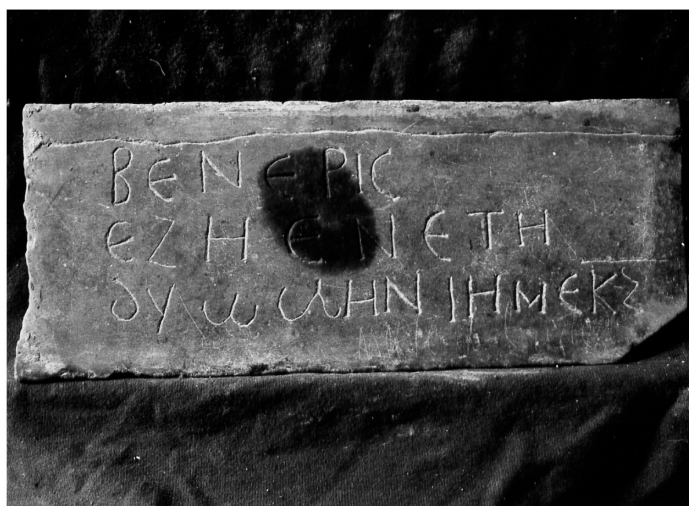 ΒΕΝΕΡΙϹ
ΕΖΗϹΕΝΕΤΗ
ΔΥΩΩΗΝΙΗΜΕΚϨ